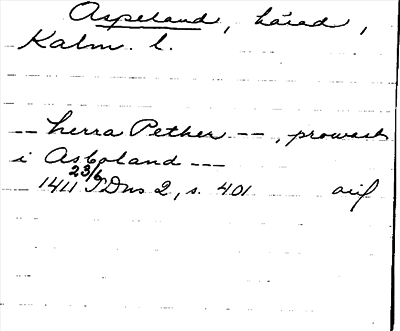 Aspeland, härad,
Kalm. l.
-- herra Pether --, prowast
i Asboland ---
1411 23/6 SDns 2, s. 401 avs